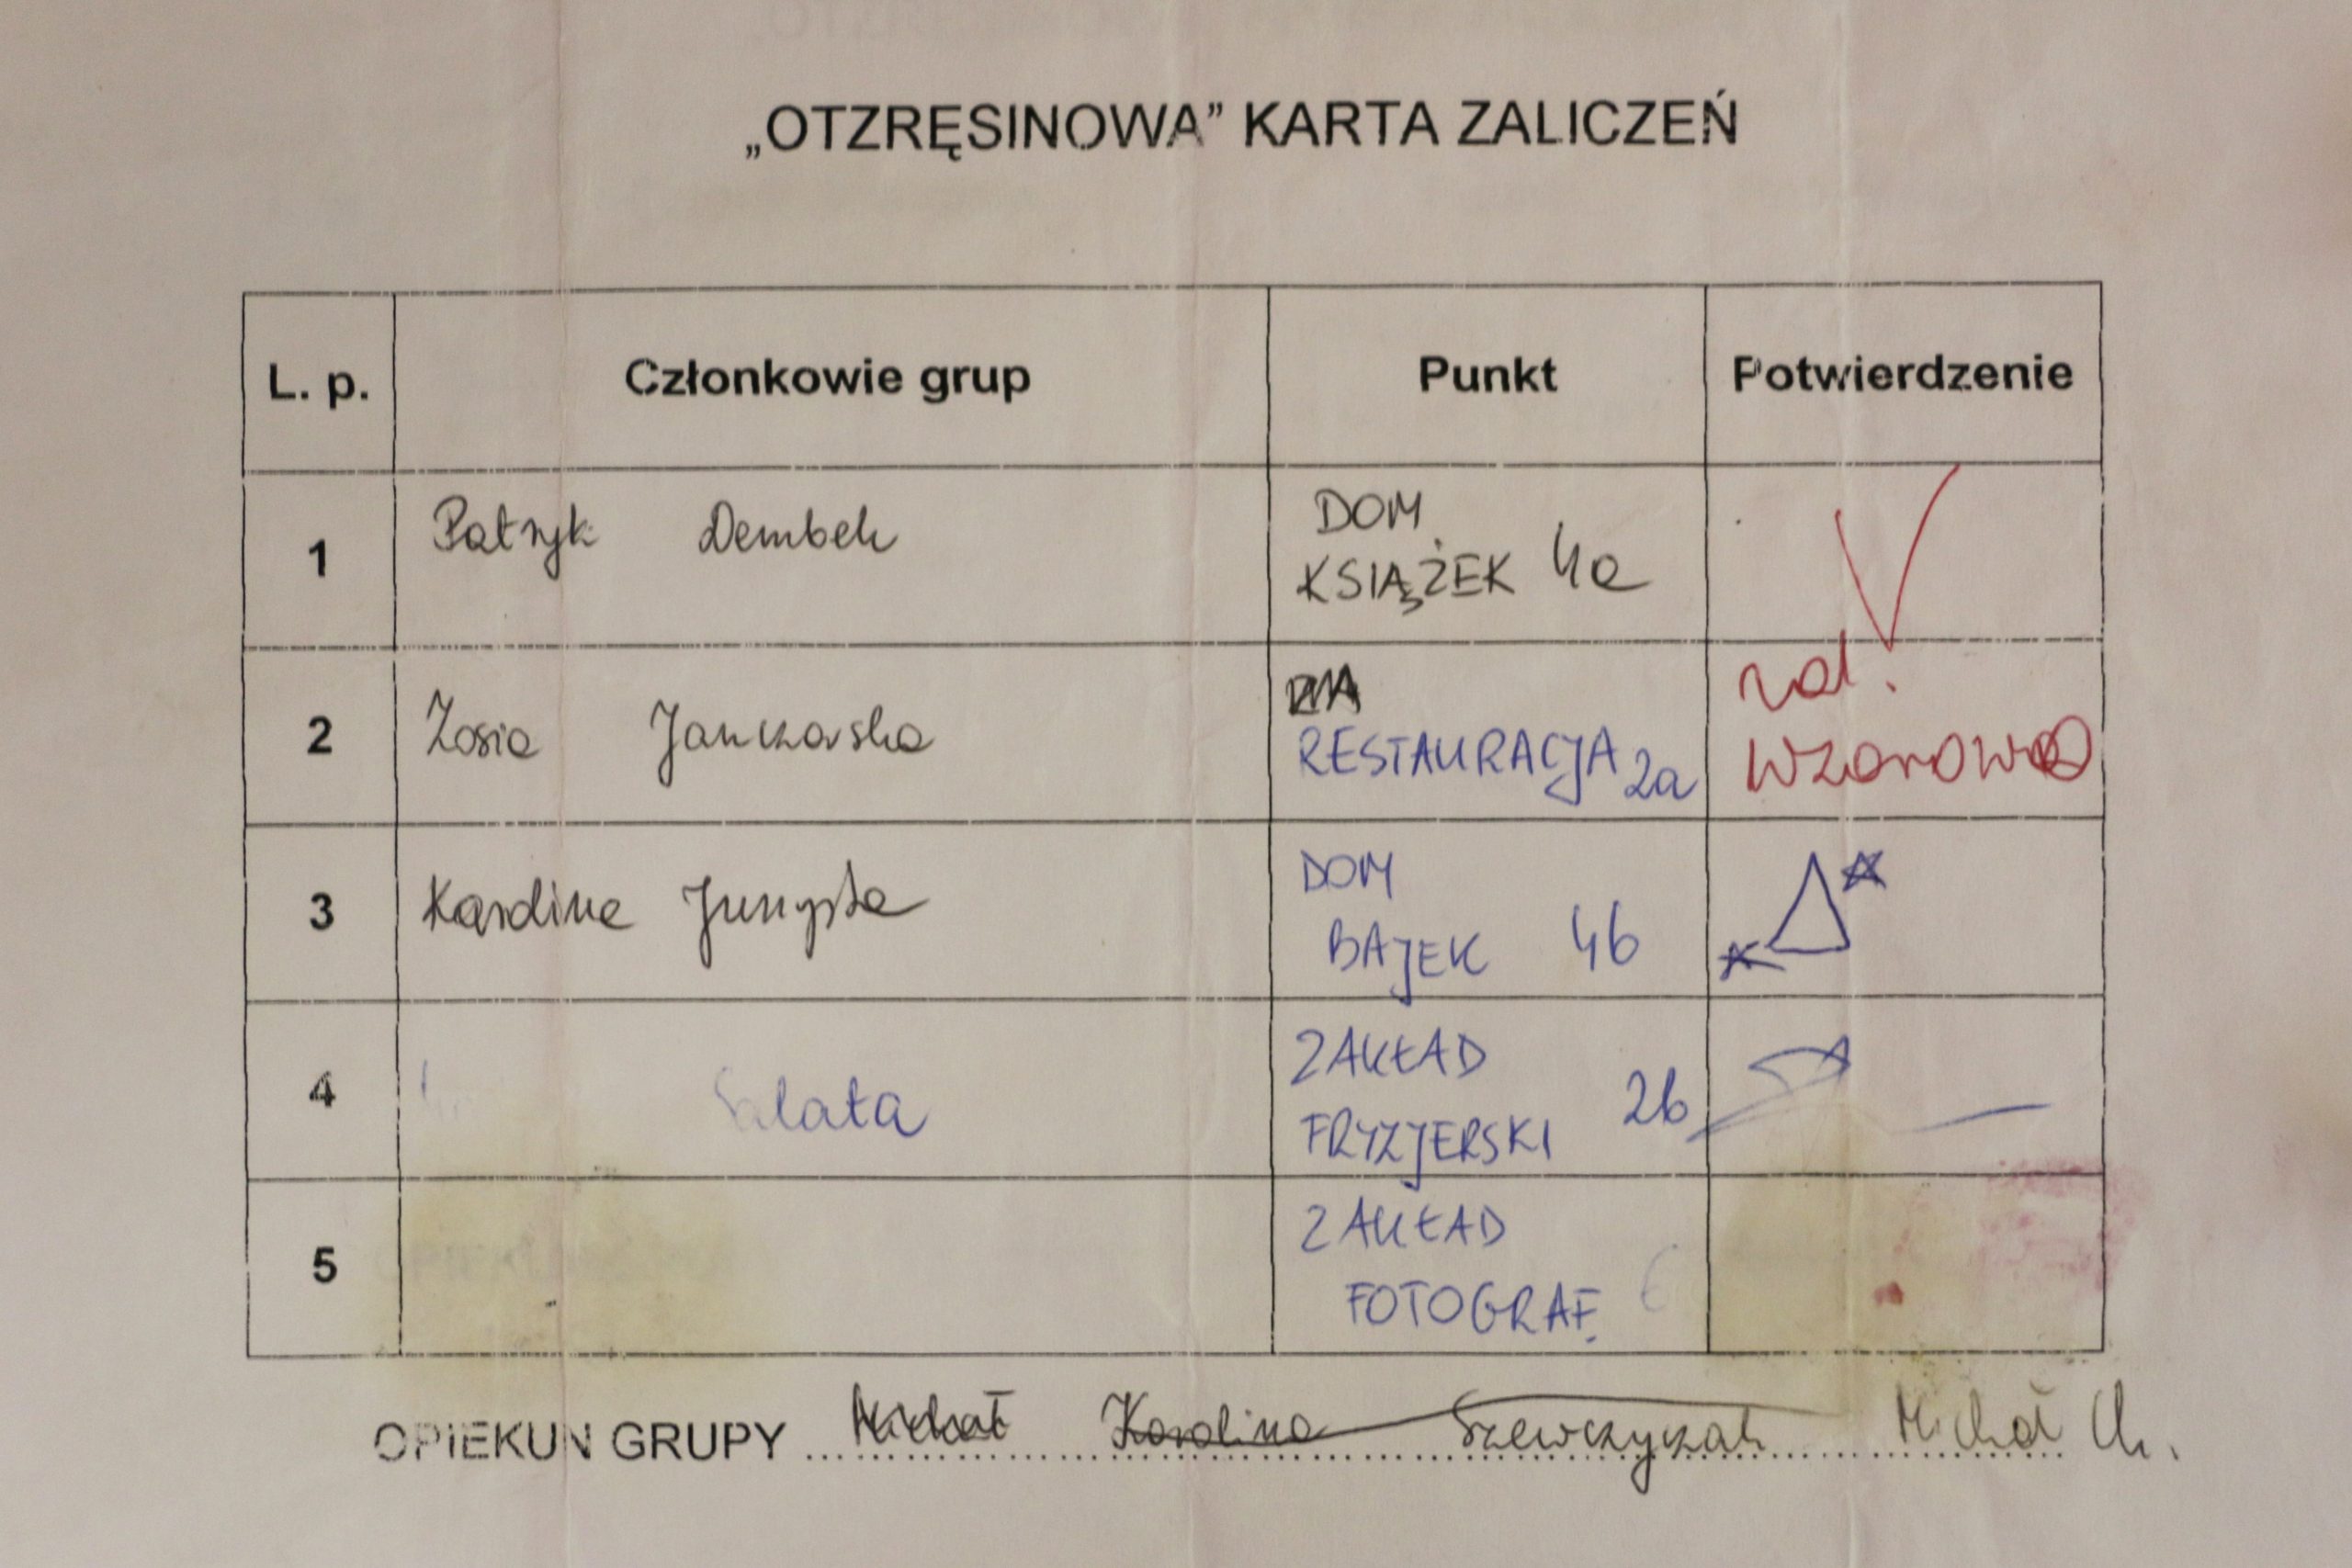 „OTZRĘSINOWA” KARTA ZALICZEŃ
L. p. Członkowie grup Punkt Potwierdzenie
1 Patryk Dembek DOM
KSIĄŻEK 4a
2 Zosia Janczarska RESTAURACJA 2a
zal.
wzorowo
3 Karolina DOM
BAJEK 4b
4 ZAKŁAD
FRYZJERSKI 2b
5 ZAKŁAD
FOTOGRAF.
OPIEKUN GRUPY Michał Karolina Szewczyzak Michał Ch.